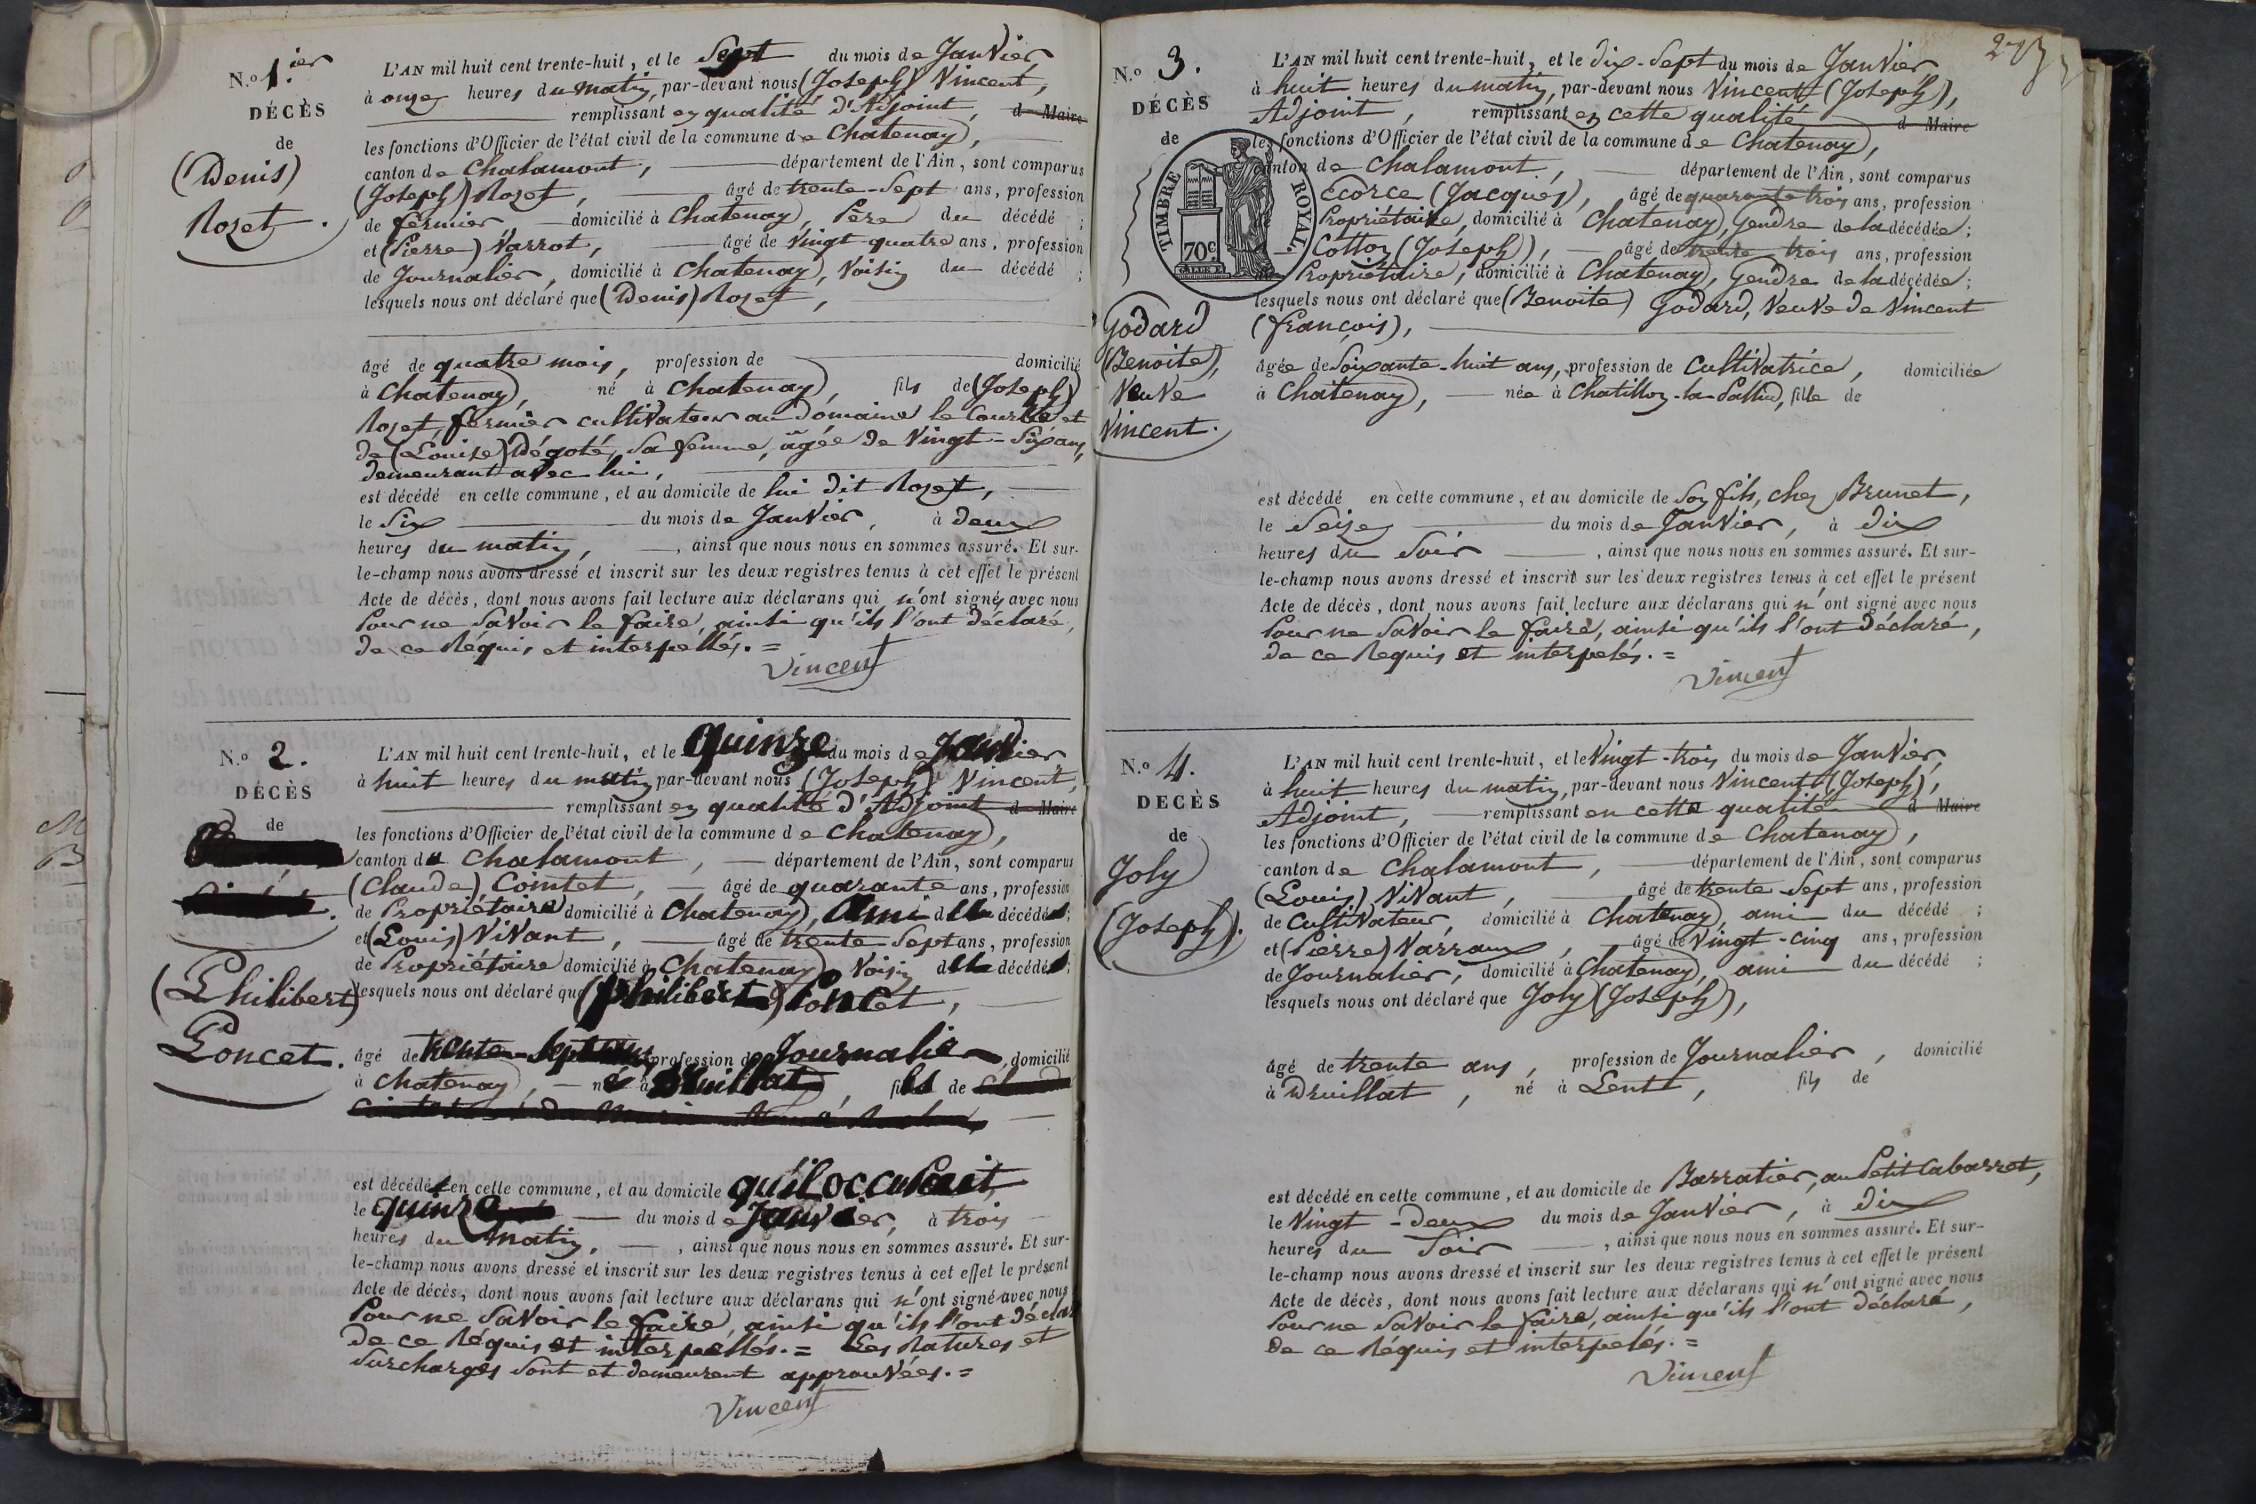 N.o 1.ier
DÉCÈS
de
(Denis)
Rozet.
L'AN mil huit cent trente-huit, et le Sept du mois de Janvier
à onze heures du matin, par-devant nous (Joseph) Vincent,
remplissant en qualité d'Adjoint, d Maire
les fonctions d'Officier de l'état civil de la commune de Chatenay,
canton de Chalamont, département de l'Ain, sont comparus
(Joseph) Rozet, âgé de trente-Sept ans, profession
de fermier domicilié à Chatenay, Père du décédé ;
et (Pierre) Varrot, âgé de Vingt-quatre ans, profession
de Journalier, domicilié à Chatenay, Voisin du décédé ;
lesquels nous ont déclaré que (Denis) Rozet,
âgé de quatre mois, profession de domicilié
à Chatenay, né à Chatenay, fils de (Joseph)
Rozet, fermier cultivateur au Domaine le Courbé, et
de (Louise) Dégoté, Sa femme, âgée de Vingt-Six ans,
demeurant avec lui,
est décédé en cette commune, et au domicile de lui dit Rozet,
le Six du mois de Janvier, à deux
heures du matin, , ainsi que nous nous en sommes assuré. Et sur-
le-champ nous avons dressé et inscrit sur les deux registres tenus à cet effet le présent
Acte de décès, dont nous avons fait lecture aux déclarans qui n'ont signé avec nous
Pour ne Savoir le faire, ainsi qu'ils l'ont déclaré,
de ce Réquis et interpellés. =
Vincent
N.o 2.
DÉCÈS
de
(Philibert)
Poncet.
L'AN mil huit cent trente-huit, et le quinze du mois de Janvier
à huit heures du matin par-devant nous (Joseph) Vincent,
remplissant en qualité d'Adjoint d Maire
les fonctions d'Officier de l'état civil de la commune de Chatenay,
canton de Chalamont, département de l'Ain, sont comparus
(Claude) Cointet, âgé de quarante ans, profession
de Propriétaire domicilié à Chatenay, Ami du décédé ;
et (Louis) Vivant, âgé de trente Sept ans, profession
de Propriétaire domicilié à Chatenay Voisin du décédé ;
lesquels nous ont déclaré que (Philibert) Poncet,
âgé de trente-Sept ans profession de Journalier, domicilié
à Chatenay, né à Druillat, fils de
est décédé en cette commune, et au domicile qu'il occupait
le quinze du mois de Janvier, à trois
heures du Matin, , ainsi que nous nous en sommes assuré. Et sur-
le-champ nous avons dressé et inscrit sur les deux registres tenus à cet effet le présent
Acte de décès, dont nous avons fait lecture aux déclarans qui n'ont signé avec nous
Pour ne Savoir le faire, ainsi qu'ils l'ont déclaré
de ce Réquis et interpellés. = Les Ratures et
Surcharges Sont et demeurent approuvées. =
Vincent
273
N.o 3.
DÉCÈS
de
TIMBRE ROYAL.
70 c.
Godard
(Benoite),
Veuve
Vincent.
L'AN mil huit cent trente-huit, et le dix-Sept du mois de Janvier
à huit heures du matin, par-devant nous Vincent (Joseph),
Adjoint, remplissant en cette qualité d Maire
les fonctions d'Officier de l'état civil de la commune de Chatenay,
canton de Chalamont, département de l'Ain, sont comparus
Ecorce (Jacques), âgé de quarante trois ans, profession
Propriétaire, domicilié à Chatenay, Gendre de la décédée ;
Cotton (Joseph), âgé de trente-trois ans, profession
Propriétaire, domicilié à Chatenay, Gendre de la décédée ;
lesquels nous ont déclaré que (Benoite) Godard, Veuve de Vincent
(françois),
âgée de Soixante-huit ans, profession de Cultivatrice, domiciliée
à Chatenay, née à Chatillon-la-Pallud, fille de
est décédé en cette commune, et au domicile de Son fils, chez Brunet,
le Seize du mois de Janvier, à dix
heures du Soir , ainsi que nous nous en sommes assuré. Et sur-
le-champ nous avons dressé et inscrit sur les deux registres tenus à cet effet le présent
Acte de décès, dont nous avons fait lecture aux déclarans qui n'ont signé avec nous
Pour ne Savoir le faire, ainsi qu'ils l'ont déclaré,
de ce Requis et interpelés. =
Vincent
N.o 4.
DECÈS
de
Joly
(Joseph).
L'AN mil huit cent trente-huit, et le Vingt-trois du mois de Janvier,
à huit heures du matin, par-devant nous Vincent (Joseph),
Adjoint, remplissant en cette qualité d Maire
les fonctions d'Officier de l'état civil de la commune de Chatenay,
canton de Chalamont, département de l'Ain, sont comparus
(Louis) Vivant, âgé de trente Sept ans, profession
de Cultivateur, domicilié à Chatenay, ami du décédé ;
et (Pierre) Varraux, âgé de Vingt-cinq ans, profession
de Journalier, domicilié à Chatenay, ami du décédé ;
lesquels nous ont déclaré que Joly (Joseph),
âgé de trente ans, profession de Journalier, domicilié
à Druillat, né à Lent, fils de
est décédé en cette commune, et au domicile de Barratier, au Petit Cabarret,
le Vingt-deux du mois de Janvier, à dix
heures du Soir , ainsi que nous nous en sommes assuré. Et sur-
le-champ nous avons dressé et inscrit sur les deux registres tenus à cet effet le présent
Acte de décès, dont nous avons fait lecture aux déclarans qui n'ont signé avec nous
Pour ne Savoir le faire, ainsi qu'ils l'ont déclaré,
de ce Réquis et interpelés. =
Vincent